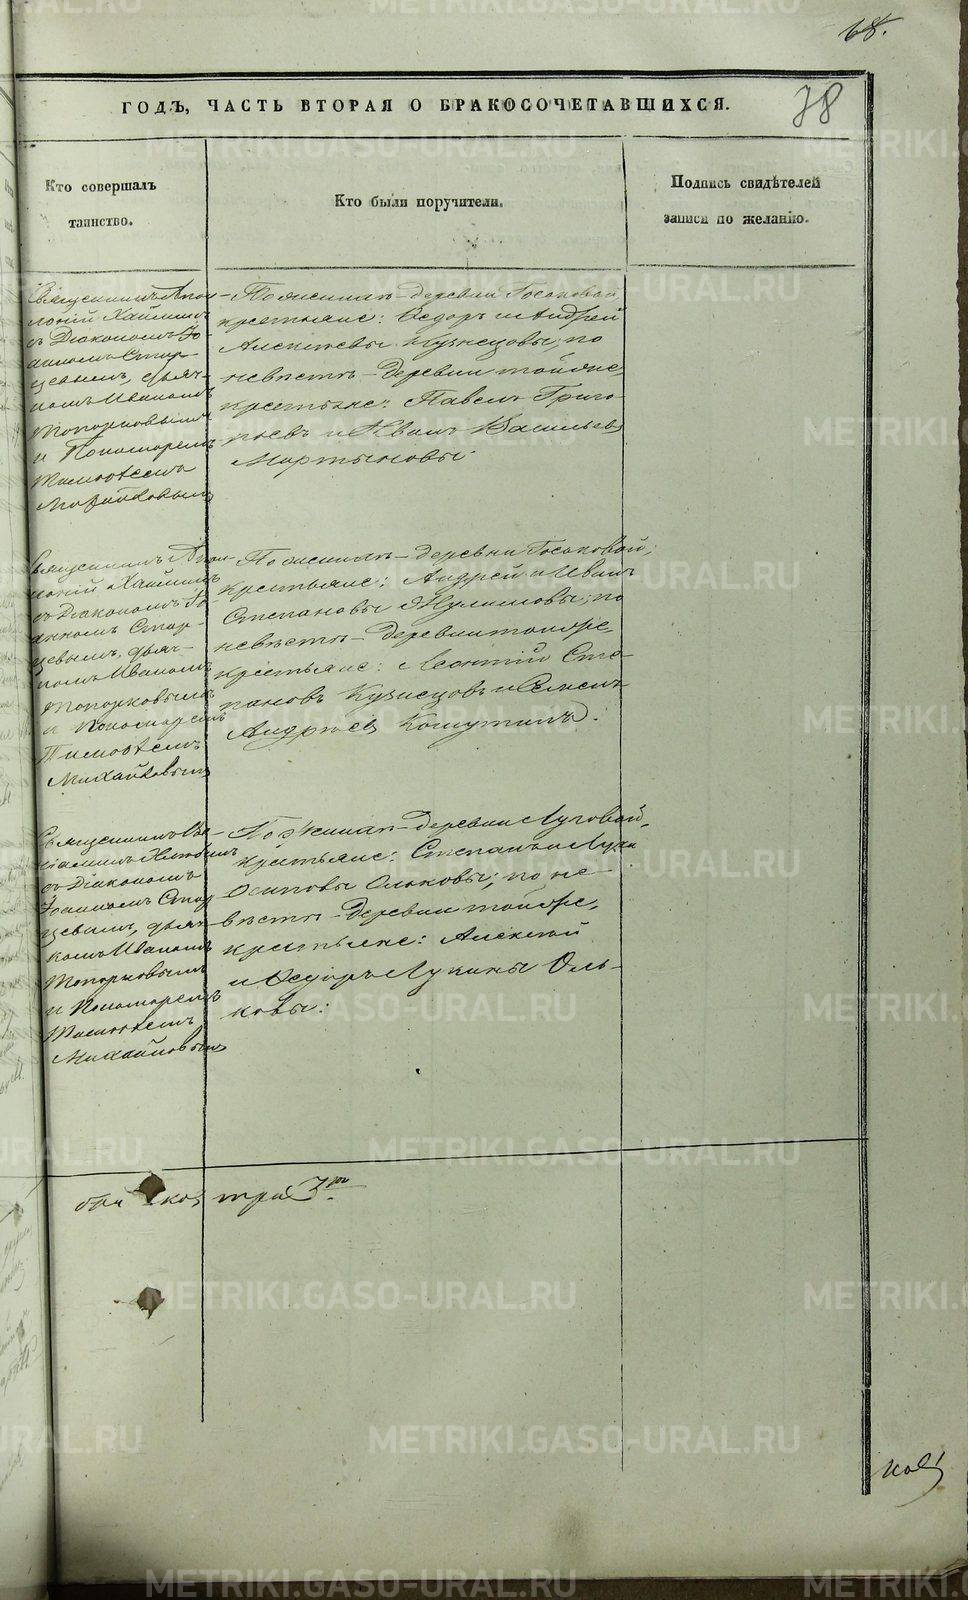 68.
78
ГОДЪ, ЧАСТЬ ВТОРАЯ О БРАКОСОЧЕТАВШИХСЯ.
Кто совершалъ
таинство.
Кто были поручители.
Подпись свидѣтелей
записи по желанію.
Священникъ Апол-
лоній Хаймин
съ Діакономъ Іо-
анномъ Стар-
цевымъ, дьяч-
комъ Иваномъ
Топорковымъ
и Пономаремъ
Тимоѳеемъ
Михайловымъ
По женихѣ – деревни Госьковой,
крестьяне: Ѳедоръ и Андрей
Алексѣевы Кузнецовы; по
невѣстѣ – деревни тойже,
крестьяне: Павелъ Григо-
рьевъ и Иванъ Васильевъ
Мартыновы.
Священникъ Апол-
лоній Хаймин
съ Діакономъ Іо-
анномъ Стар-
цевымъ, дьяч-
комъ Иваномъ
Топорковымъ
и Пономаремъ
Тимоѳеемъ
Михайловымъ
По женихѣ – деревни Госьковой,
крестьяне: Андрей и Иванъ
Степановы; по
невѣстѣ – деревни тойже,
крестьяне: Леонтій Сте-
пановъ Кузнецовъ и Семенъ
Андреевъ Кокушинъ.
Священникъ
съ Діакономъ
Іоанномъ Стар-
цевымъ, дьяч-
комъ Иваномъ
Топорковымъ
и Пономаремъ
Тимоѳеемъ
Михайловымъ
По женихѣ – деревни Луговой,
крестьяне: Степанъ и Лука
Осиповы Ольковы; по не-
вѣстѣ – деревни тойже,
крестьяне: Алексѣй
и Ѳедоръ Лукины Оль-
ковы.
три 3
METRIKI.GASO-URAL.RU